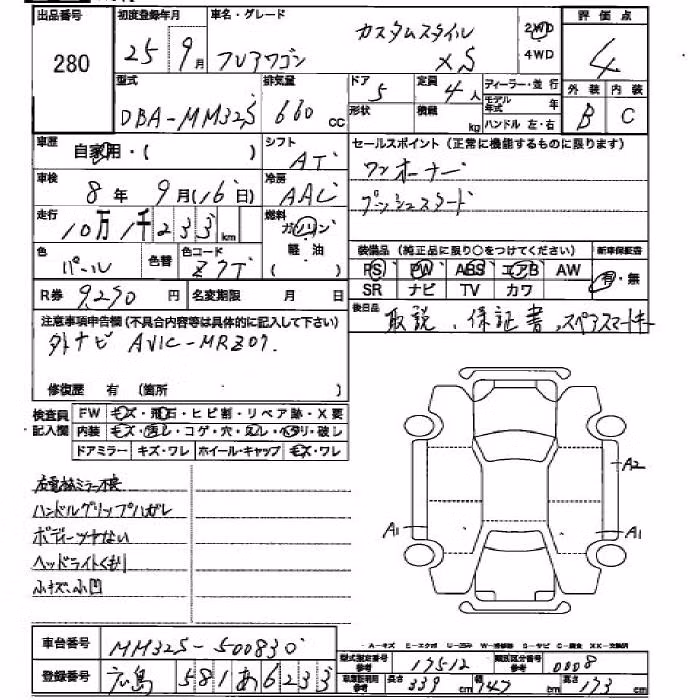 出品番号 初度登録年月 車名・グレード 評価点
280 25年 9月 フレアワゴン カスタムスタイル XS 2WD 4WD 4
型式 排気量 ドア 定員 ディーラー・並行 外装 内装
DBA-MM32S 660 cc 5 4人 モデル年式 年 B C
形状 積載 kg ハンドル 左・右
車歴 自家用・( ) シフト AT セールスポイント(正常に機能するものに限ります)
車検 8年 9月(16日) 冷房 AAC ワンオーナー
走行 10万1千233km 燃料 ガソリン 軽油 ( ) プッシュスタート
色 パール 色替 色コード Z7T 装備品(純正品に限り○をつけてください) 新車保証書
PS PW ABS エアB AW 有・無
R券 9,290円 名変期限 月 日 SR ナビ TV カワ
注意事項申告欄(不具合内容等は具体的に記入して下さい) 後日品 取説、保証書、スペアスマートキー
外ナビ AVIC-MRZ07.
修復歴 有 (箇所 )
検査員記入欄 FW キズ・飛石・ヒビ割・リペア跡・X要
内装 キズ・汚レ・コゲ・穴・スレ・ヘタリ・破レ
ドアミラー キズ・ワレ ホイール・キャップ キズ・ワレ
A2
左電格ミラー不良
ハンドルグリップハガレ
A1 A1
ボディーツヤない
ヘッドライトくもり
小キズ、小凹
A-キズ E-エクボ U-凹み W-補修跡 S-サビ C-腐食 XX-交換済
車台番号 MM32S-500830 型式指定番号 参考 17512 類別区分番号 参考 0008
登録番号 広島 581 あ 6233 車庫証明用 参考 長さ 339cm 幅 147cm 高さ 173cm